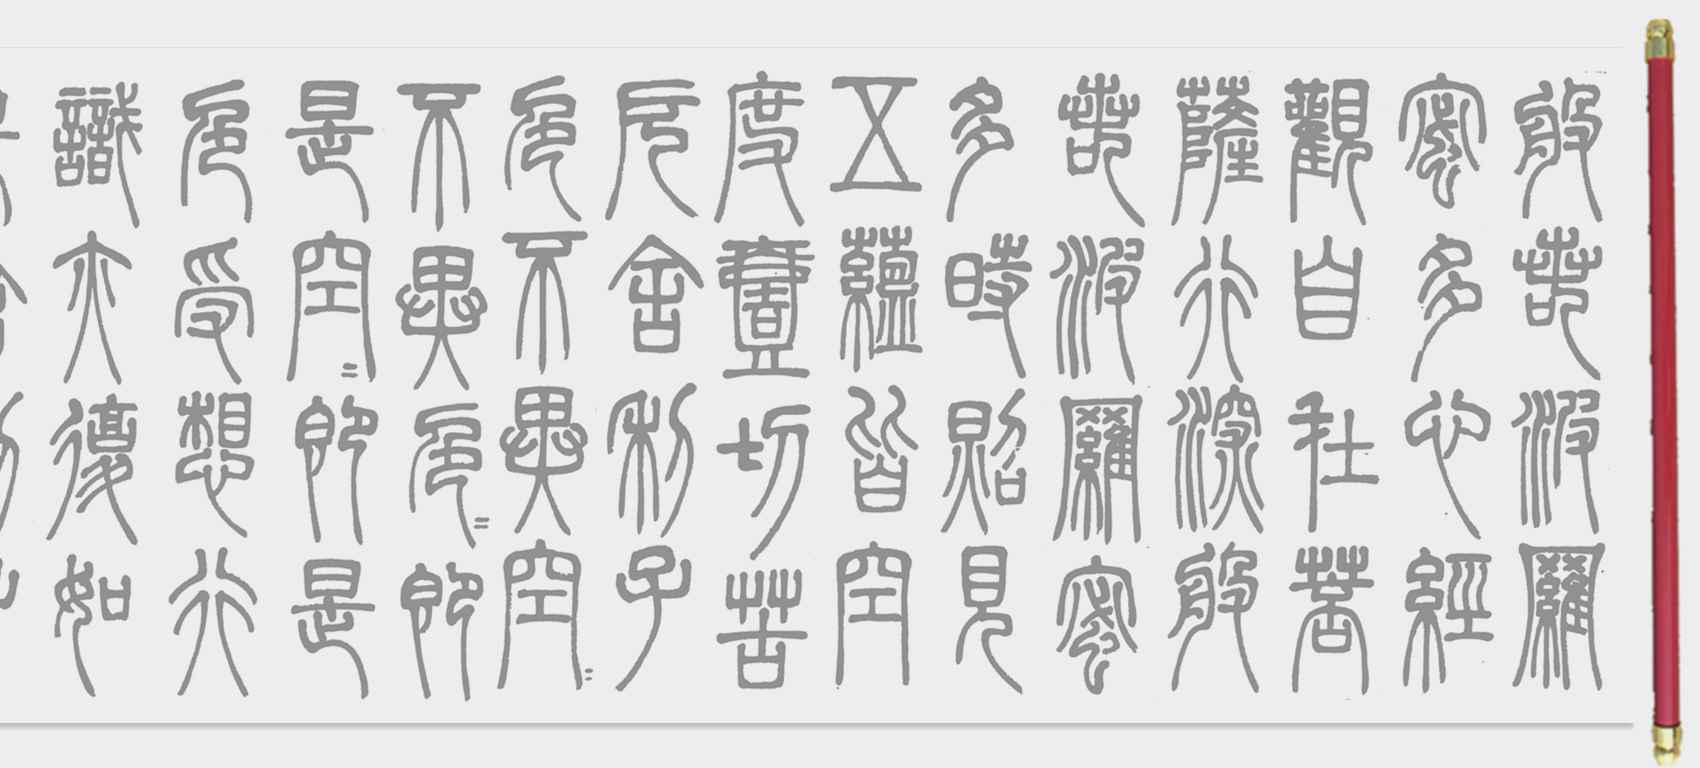 般若波羅
蜜多心經
觀自在菩
薩行深般
若波羅蜜
多時照見
五蘊皆空
度壹切苦
厄舍利子
色不異空〻
不異色〻即
是空〻即是
色受想行
識亦復如